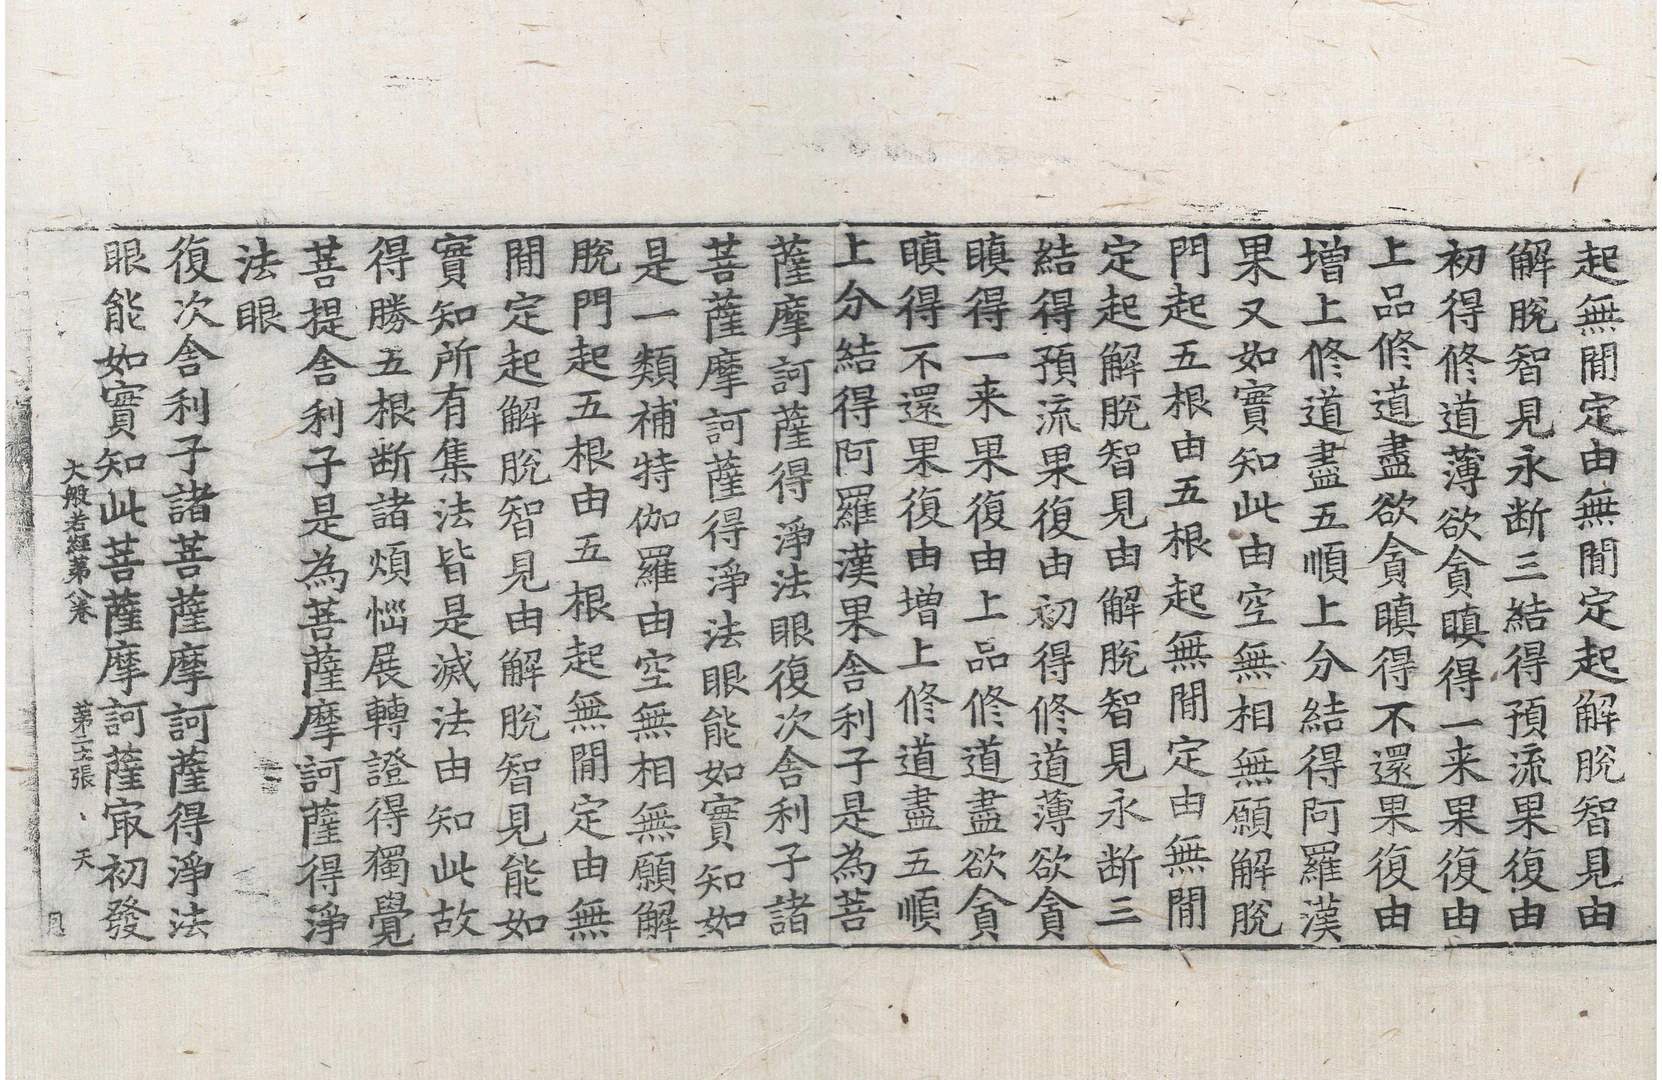 起無閒定由無閒定起解脫智見由
解脫智見永断三結得預流果復由
初得修道薄欲貪瞋得一来果復由
上品修道盡欲貪瞋得不還果復由
增上修道盡五順上分結得阿羅漢
果又如實知此由空無相無願解脫
門起五根由五根起無閒定由無閒
定起解脫智見由解脫智見永断三
結得預流果復由初得修道薄欲貪
瞋得一来果復由上品修道盡欲貪
瞋得不還果復由增上修道盡五順
上分結得阿羅漢果舍利子是為菩
薩摩訶薩得淨法眼復次舍利子諸
菩薩摩訶薩得淨法眼能如實知如
是一類補特伽羅由空無相無願解
脫門起五根由五根起無閒定由無
閒定起解脫智見由解脫智見能如
實知所有集法皆是滅法由知此故
得勝五根断諸煩惱展轉證得獨覺
菩提舍利子是為菩薩摩訶薩得淨
法眼
復次舍利子諸菩薩摩訶薩得淨法
眼能如實知此菩薩摩訶薩㝡初發
大般若經第八卷 第二十張 天